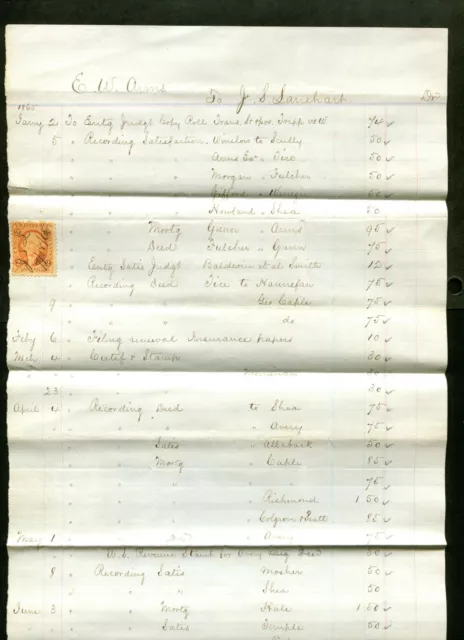 E. W. Arms To J. S. Lanehart Dr
1865
Jany 2 To Entg Judgt Copy Roll Trans
5 " Recording Satisfaction. Winslow to Scully 50
Arms Exr " Tice 50
" " Morgan " Fulcher 50
" " Gifford " 50
" " Howland " Shea 50
" " Mortg Gunn " Arms 95
" " Deed Fulcher " Gunn 75
" Entg Satis Judgt Baldwin et al Smith 12
" Recording Deed Tice to Hannefan 75
9 " " " " Geo Caple 75
" " " " do 75
Feby 6 " Filing renewal Insurance papers 10
Mch 4 " Certif & Stamp 30
" " 30
23 " " 30
April 4 " Recording Deed to Shea 75
" " " " Avery 75
" " Satis " 50
" " Mortg " Caple 85
" " " " " 75
" " " " Richmond 1 50
" " " " 85
May 1 " " Deed " Avery 75
" U.S. Revenue Stamp for Deed 50
8 " Recording Satis Mosher 50
" " " Shea 50
June 3 " " Mortg " Hale 1 50
" " Satis " Temple 50